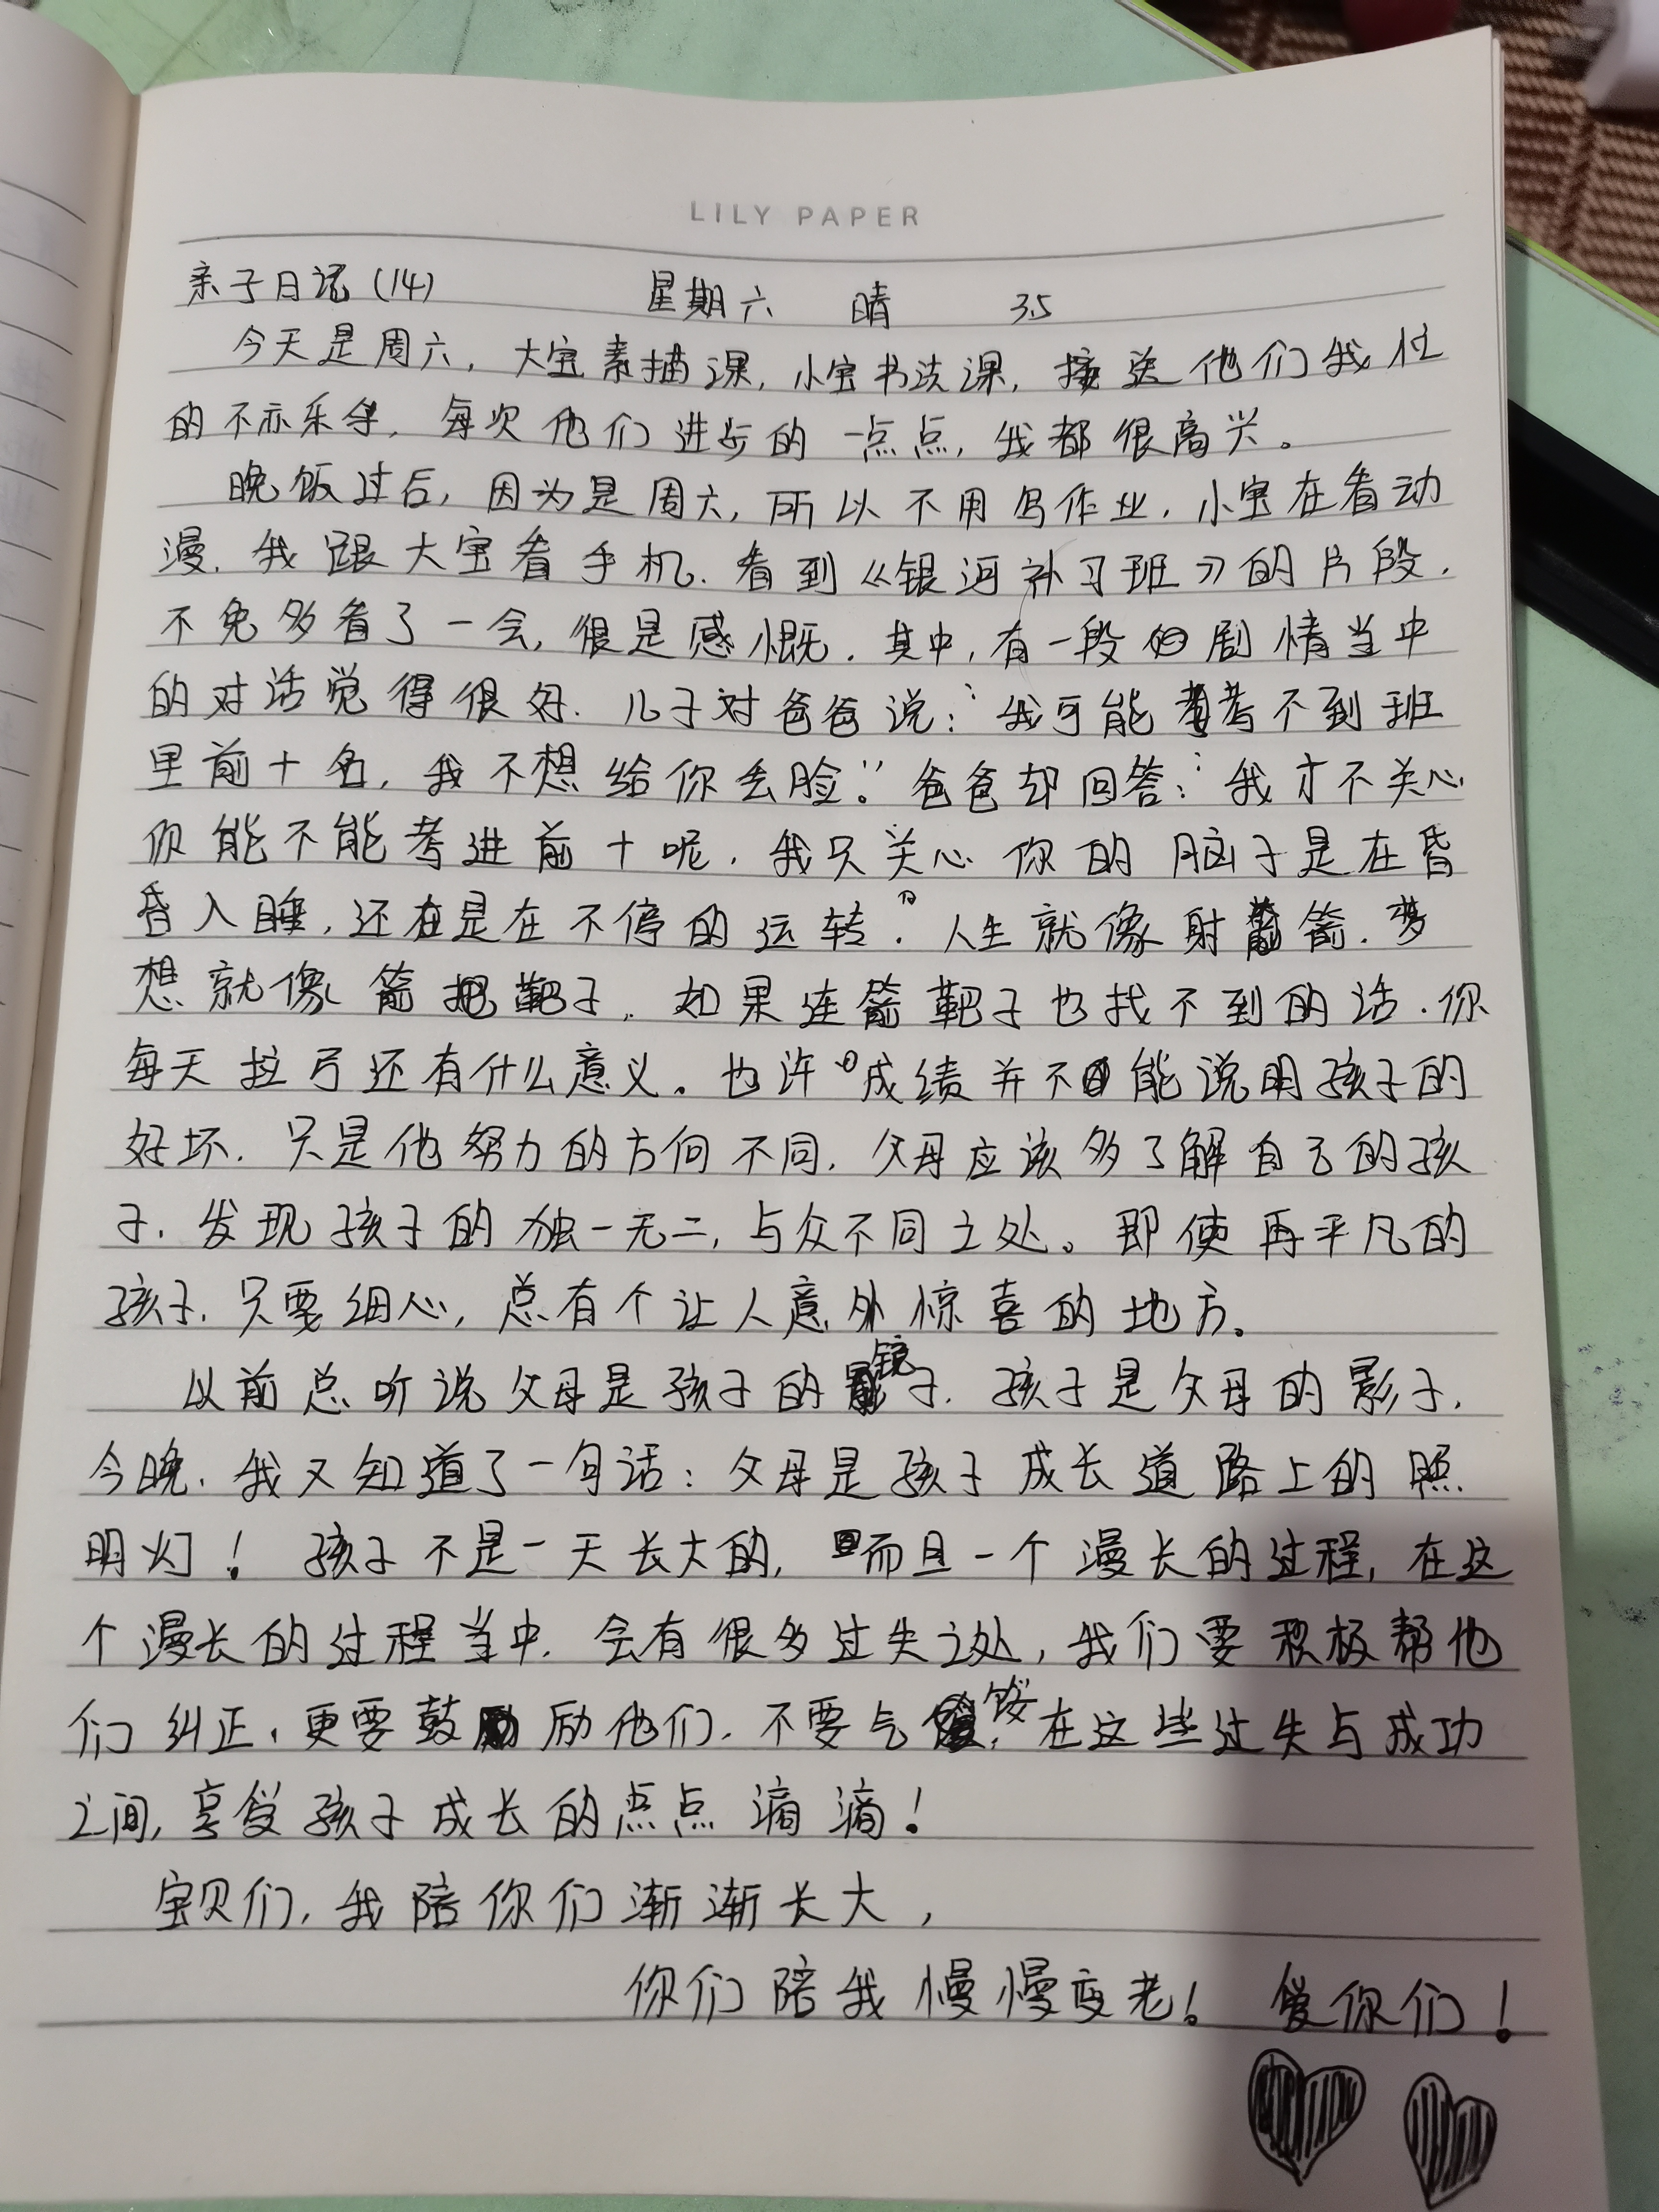 LILY PAPER
亲子日记(14) 星期六 晴 3.5
今天是周六,大宝素描课,小宝书法课,接送他们我忙
的不亦乐乎,每次他们进步的一点点,我都很高兴。
晚饭过后,因为是周六,所以不用写作业,小宝在看动
漫,我跟大宝看手机,看到《银河补习班》的片段,
不免多看了一会,很是感慨.其中,有一段的剧情当中
的对话觉得很好.儿子对爸爸说:“我可能考不到班
里前十名,我不想给你丢脸。”爸爸却回答:“我才不关心
你能不能考进前十呢,我只关心你的脑子是在昏
昏入睡,还在是在不停的运转”.人生就像射箭.梦
想就像箭把靶子.如果连箭靶子也找不到的话.你
每天拉弓还有什么意义。也许“成绩并不能说明孩子的
好坏.只是他努力的方向不同,父母应该多了解自己的孩
子.发现孩子的独一无二,与众不同之处。即使再平凡的
孩子.只要细心,总有个让人意外惊喜的地方。
以前总听说父母是孩子的镜子.孩子是父母的影子.
今晚.我又知道了一句话:父母是孩子成长道路上的照
明灯!孩子不是一天长大的,而且一个漫长的过程,在这
个漫长的过程当中.会有很多过失之处,我们要积极帮他
们纠正,更要鼓励他们.不要气馁,在这些过失与成功
之间,享受孩子成长的点点滴滴!
宝贝们,我陪你们渐渐长大,
你们陪我慢慢变老!爱你们!